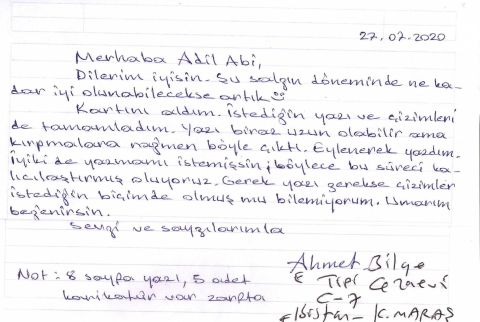 27.07.2020
Merhaba Adil Abi,
Dilerim iyisin. Şu salgın döneminde ne ka-
dar iyi olunabilecekse artık
Kartını aldım. İstediğin yazı ve çizimleri
de tamamladım. Yazı biraz uzun olabilir ama
kırpmalara rağmen böyle çıktı. Eylenerek yazdım.
İyiki de yazmamı istemişsin, böylece bu süreci ka-
lıcılaştırmış oluyoruz. Gerek yazı gerekse çizimler
istediğin biçimde olmuş mu bilemiyorum. Umarım
beğenirsin.
Sevgi ve saygılarımla
Ahmet Bilge
E Tipi Cezaevi
C-7
Elbistan - K.MARAŞ
Not: 8 sayfa yazı, 5 adet
karikatür var zarfta